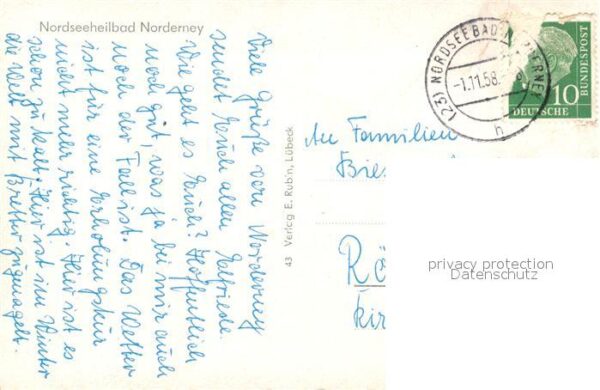 Nordseeheilbad Norderney
Viele Grüße von Norderney
sendet Euch allen Elfriede.
Wie geht es Euch? Hoffentlich
noch gut, was ja bei mir auch
noch der Fall ist. Das Wetter
ist für eine Erholungskur
nicht mehr richtig. Hier ist es
schon zu kalt. Hier ist im Winter
die Welt mit Bretter zugenagelt.
43 Verlag E. Rubin, Lübeck
(23) NORDSEEBAD NORDERNEY
-7.11.58.
h
10
DEUTSCHE
BUNDESPOST
An Familien
Bie
Rö
Kir
privacy protection
Datenschutz